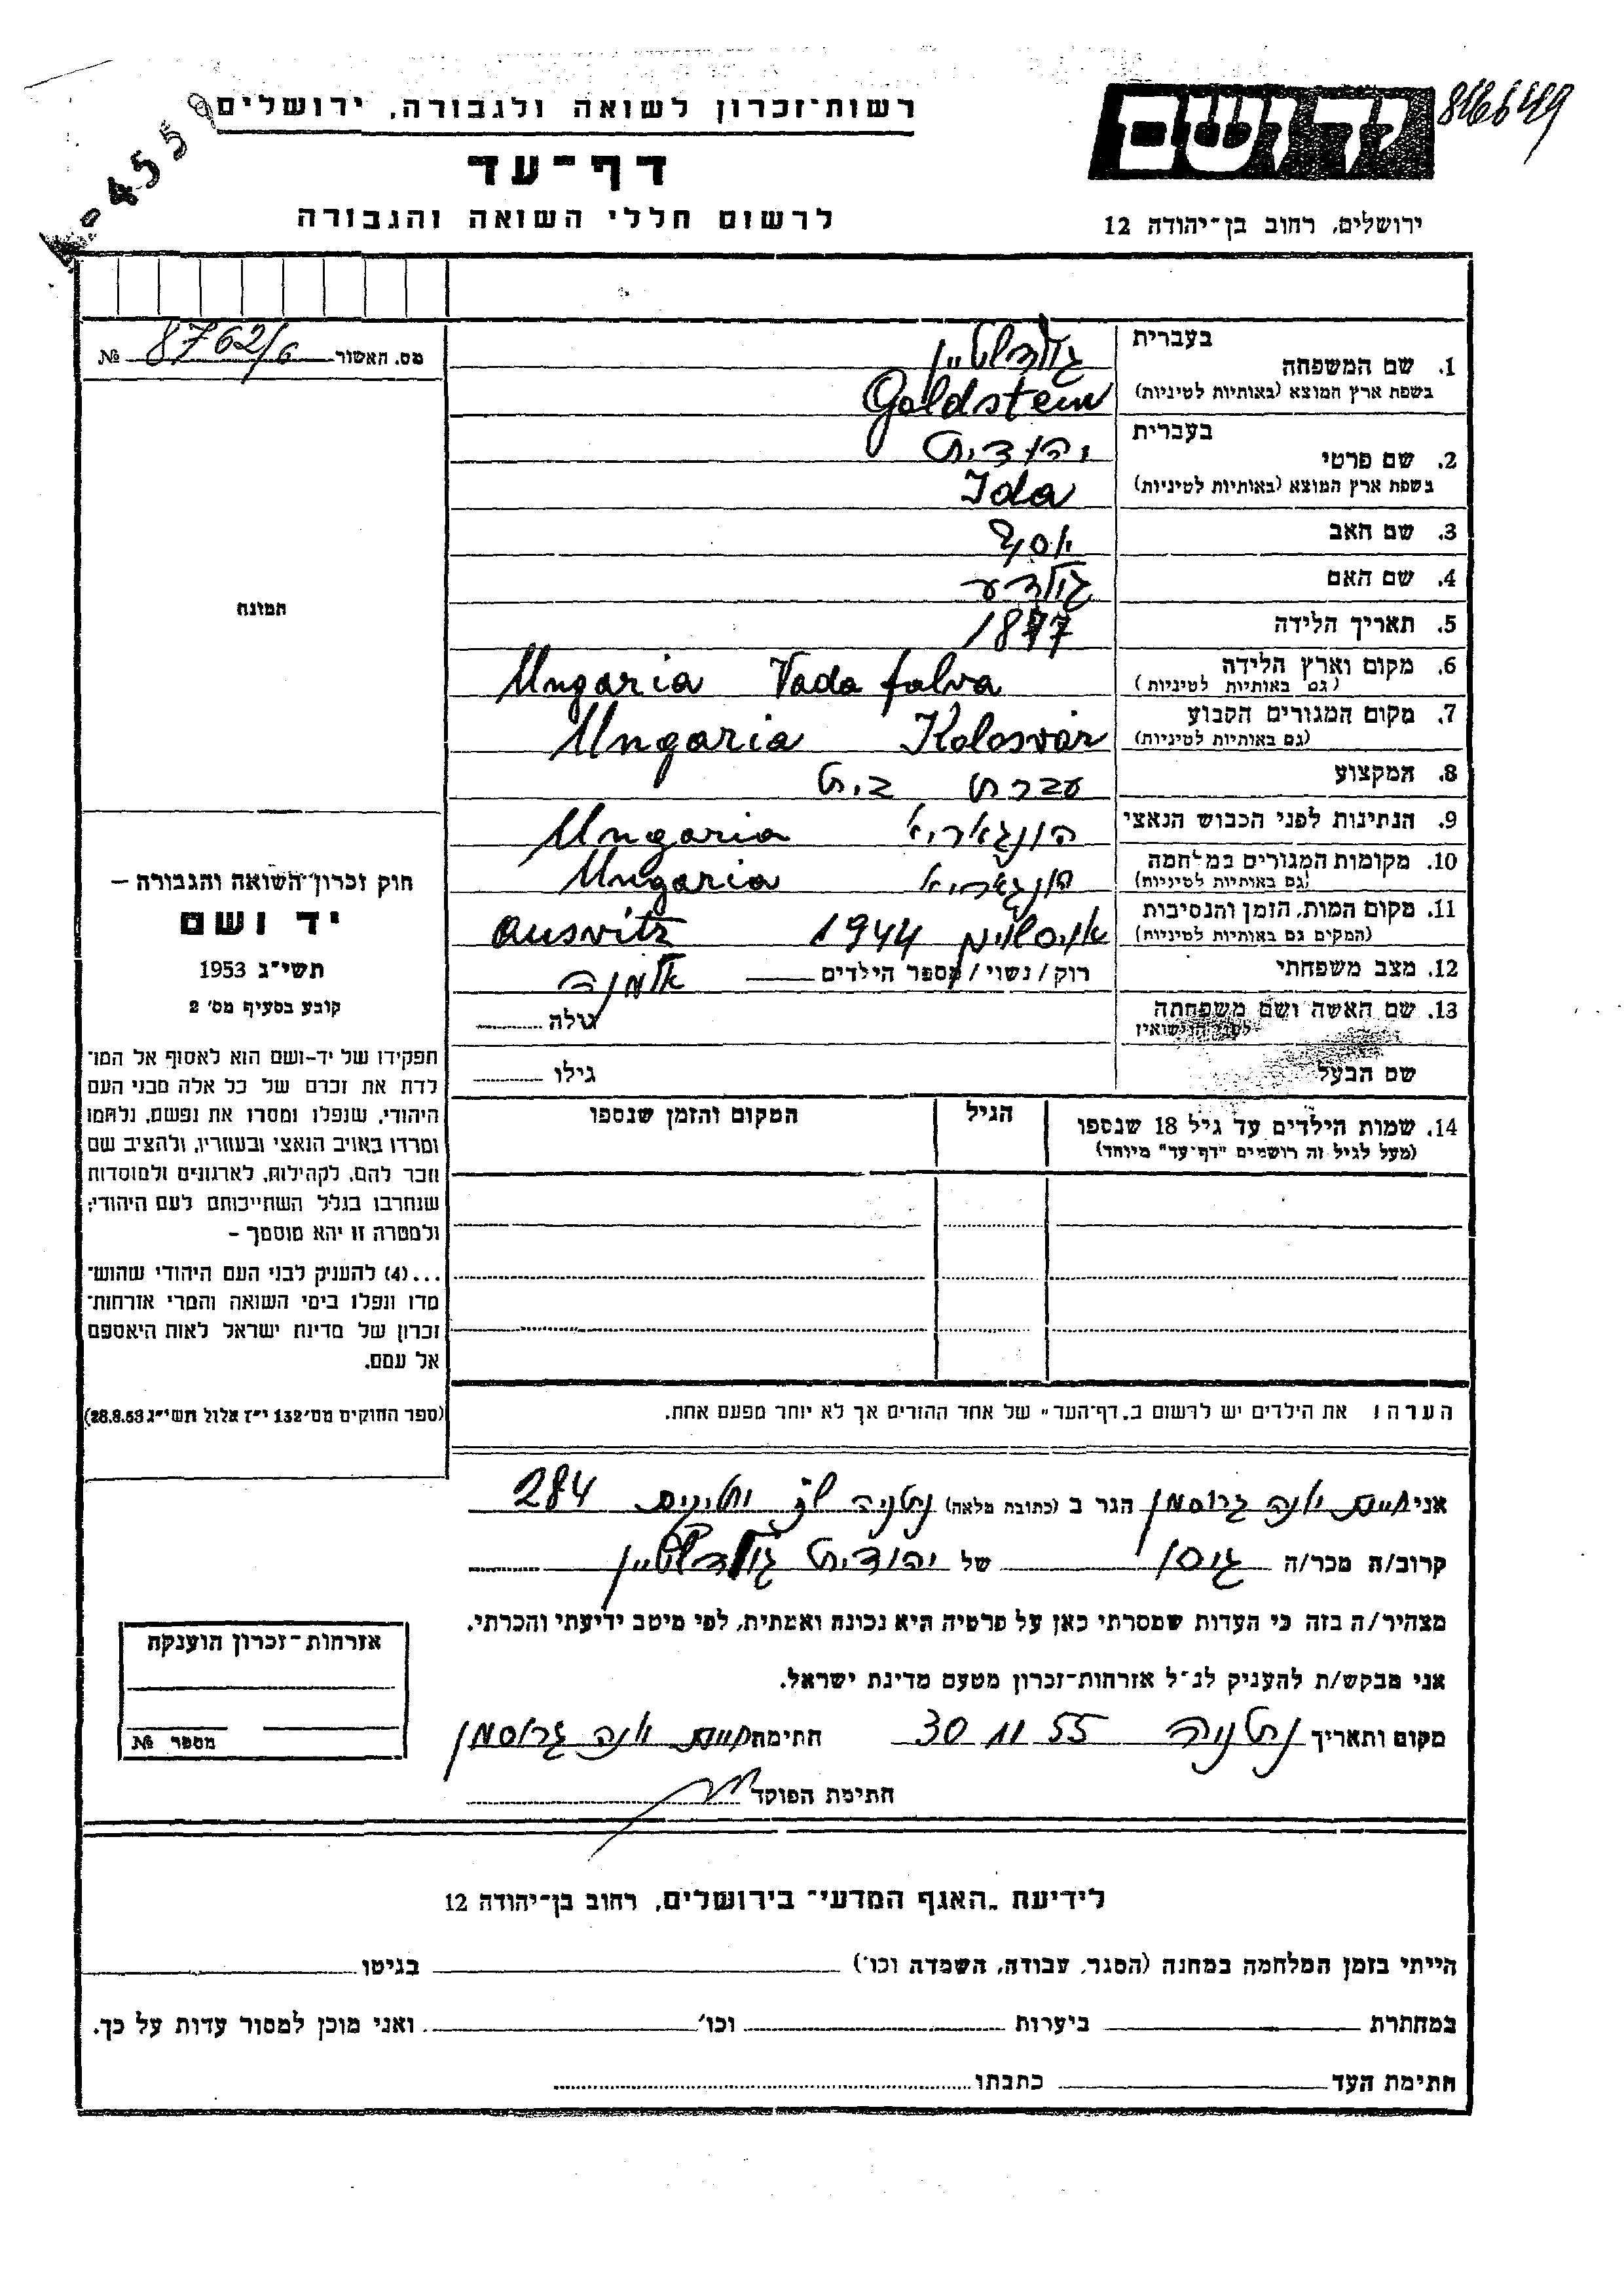 רשות-זכרון לשואה ולגבורה, ירושלים
יד ושם
816649
דף-עד
לרשום חללי השואה והגבורה
ירושלים, רחוב בן-יהודה 12
מס. האשור 8762/6 №
בעברית
גולדשטיין
1. שם המשפחה
בשפת ארץ המוצא (באותיות לטיניות)
Goldstein
בעברית
יהודית
2. שם פרטי
בשפת ארץ המוצא (באותיות לטיניות)
Ida
3. שם האב יוסף
4. שם האם גולדע
5. תאריך הלידה 1877
6. מקום וארץ הלידה
(גם באותיות לטיניות)
Ungaria Vada falva
7. מקום המגורים הקבוע
(גם באותיות לטיניות)
Ungaria Kolosvár
8. המקצוע עקרת בית
9. הנתינות לפני הכבוש הנאצי הונגאריא Ungaria
10. מקומות המגורים במלחמה
(גם באותיות לטיניות)
הונגאריא Ungaria
11. מקום המות, הזמן והנסיבות
(המקום גם באותיות לטיניות)
1944 Ausvitz
12. מצב משפחתי רוק/נשוי/מספר הילדים אלמנה
13. שם האשה ושם משפחתה
לפני הנישואין
גילה
שם הבעל גילו
14. שמות הילדים עד גיל 18 שנספו
(מעל לגיל זה רושמים "דף-עד" מיוחד)
הגיל
המקום והזמן שנספו
התמונה
חוק זכרון השואה והגבורה –
יד ושם
תשי"ג 1953
קובע בסעיף מס' 2
תפקידו של יד-ושם הוא לאסוף אל המו־
לדת את זכרם של כל אלה מבני העם
היהודי, שנפלו ומסרו את נפשם, נלחמו
ומרדו באויב הנאצי ובעוזריו, ולהציב שם
וזכר להם, לקהילות, לארגונים ולמוסדות
שנחרבו בגלל השתייכותם לעם היהודי;
ולמטרה זו יהא מוסמך –
...(4) להעניק לבני העם היהודי שהוש־
מדו ונפלו בימי השואה והמרי אזרחות־
זכרון של מדינת ישראל לאות היאספם
אל עמם.
(ספר החוקים מס' 132 י"ז אלול תשי"ג 28.8.53)
הערה: את הילדים יש לרשום ב"דף-העד" של אחד ההורים אך לא יותר מפעם אחת.
אני יונה גרוסמן הגר ב (כתובת מלאה) נתניה 284
קרוב/ה מכר/ה של יהודית גולדשטיין
מצהיר/ה בזה כי העדות שמסרתי כאן על פרטיה היא נכונה ואמתית, לפי מיטב ידיעתי והכרתי.
אני מבקש/ת להעניק לנ"ל אזרחות-זכרון מטעם מדינת ישראל.
מקום ותאריך נתניה 30 11 55 חתימה יונה גרוסמן
חתימת הפוקד
אזרחות-זכרון הוענקה
מספר №
לידיעת "האגף המדעי" בירושלים, רחוב בן-יהודה 12
הייתי בזמן המלחמה במחנה (הסגר, עבודה, השמדה וכו') בגיטו
במחתרת ביערות וכו' ואני מוכן למסור עדות על כך.
חתימת העד כתבתו